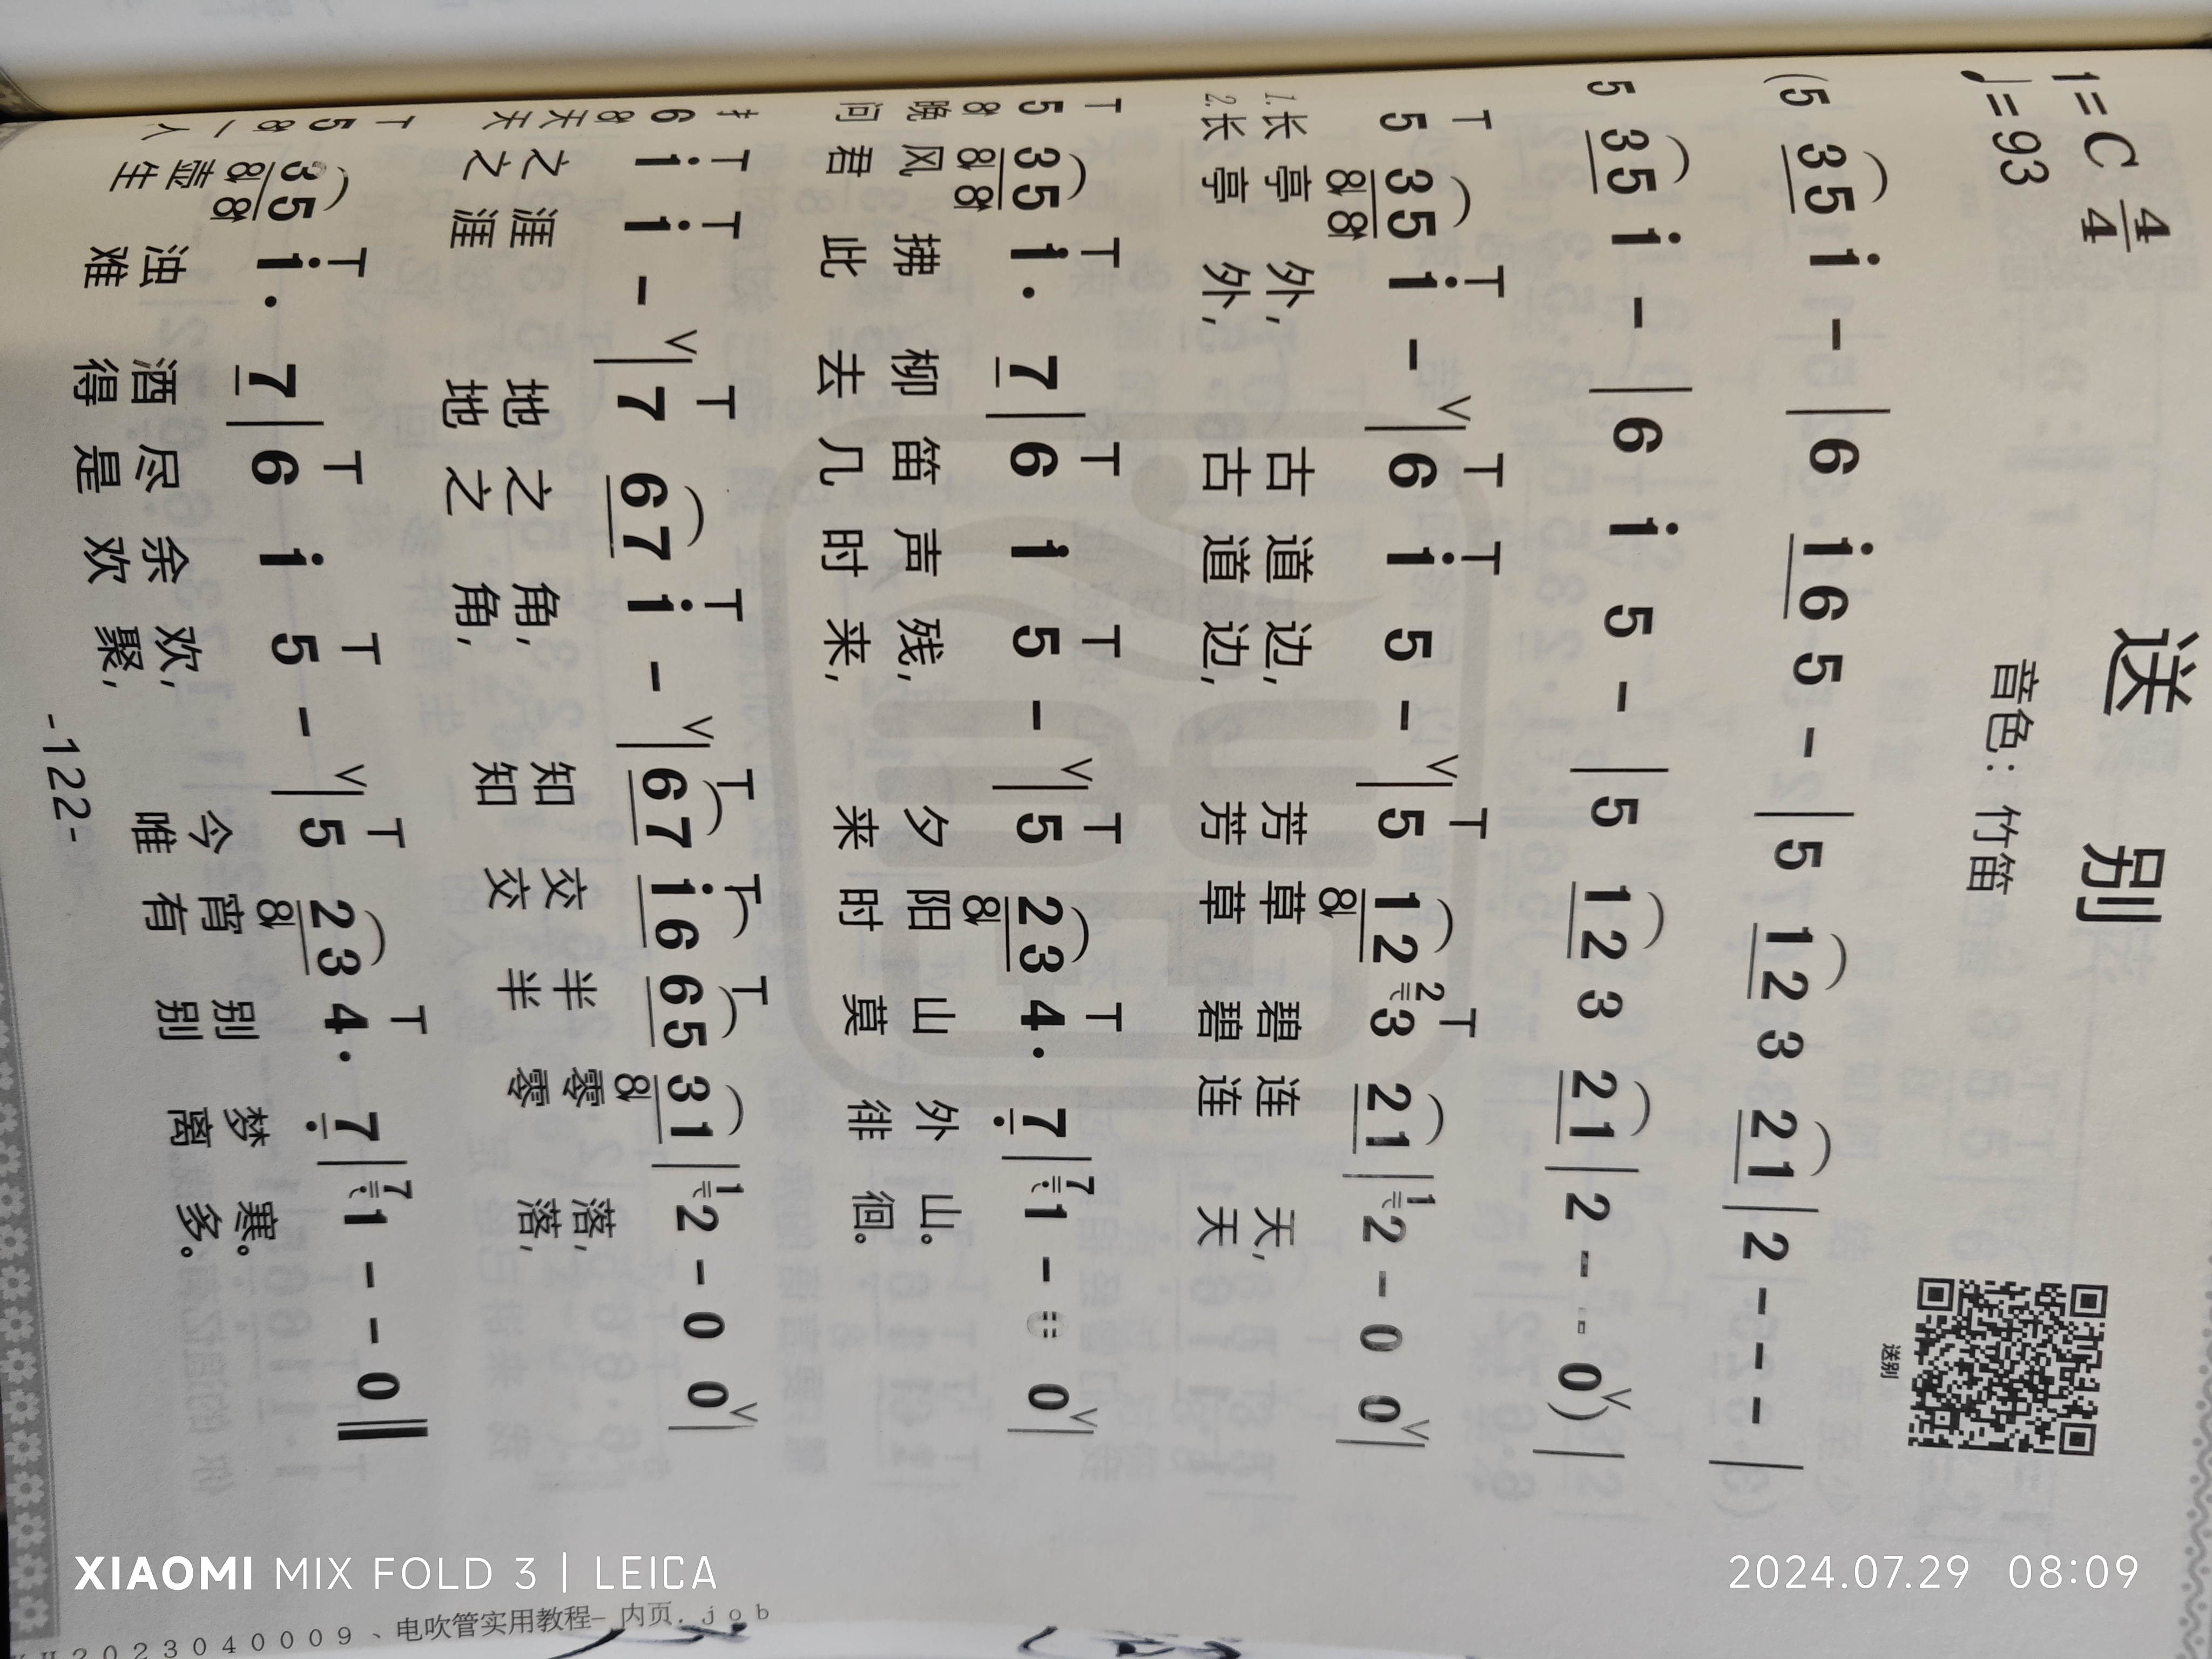 送 别
1=C 4/4
♩=93
音色：竹笛
送别
(5 3 5 i - | 6 i 6 5 - | 5 1 2 3 2 1 | 2 - - - |
5 3 5 i - | 6 i 5 - | 5 1 2 3 2 1 | 2 - - 0 ∨) |
T T ∨ T T ∨ T T
5 3 5 i - | 6 i 5 - | 5 1 2 ²3 2 1 | ¹2 - 0 0 ∨ |
1.长 亭 外， 古 道 边， 芳 草 碧 连 天，
2.长 亭 外， 古 道 边， 芳 草 碧 连 天
T T T T ∨ T T
5 3 5 i · 7 | 6 i 5 - | 5 2 3 4 · 7 | ⁷1 - 0 ∨ |
晚 风 拂 柳 笛 声 残， 夕 阳 山 外 山。
问 君 此 去 几 时 来， 来 时 莫 徘 徊。
T T ∨ T T ∨ T T T
6 i i - | 7 6 7 i - | 6 7 i 6 6 5 3 1 | ¹2 - 0 0 ∨ |
天 之 涯 地 之 角， 知 交 半 零 落，
天 之 涯 地 之 角， 知 交 半 零 落，
T T T T ∨ T T
5 3 5 i · 7 | 6 i 5 - | 5 2 3 4 · 7 | ⁷1 - - 0 ‖
一 壶 浊 酒 尽 余 欢， 今 宵 别 梦 寒。
人 生 难 得 是 欢 聚， 唯 有 别 离 多。
-122-
XIAOMI MIX FOLD 3 | LEICA
2024.07.29 08:09
2023040009、电吹管实用教程- 内页. job